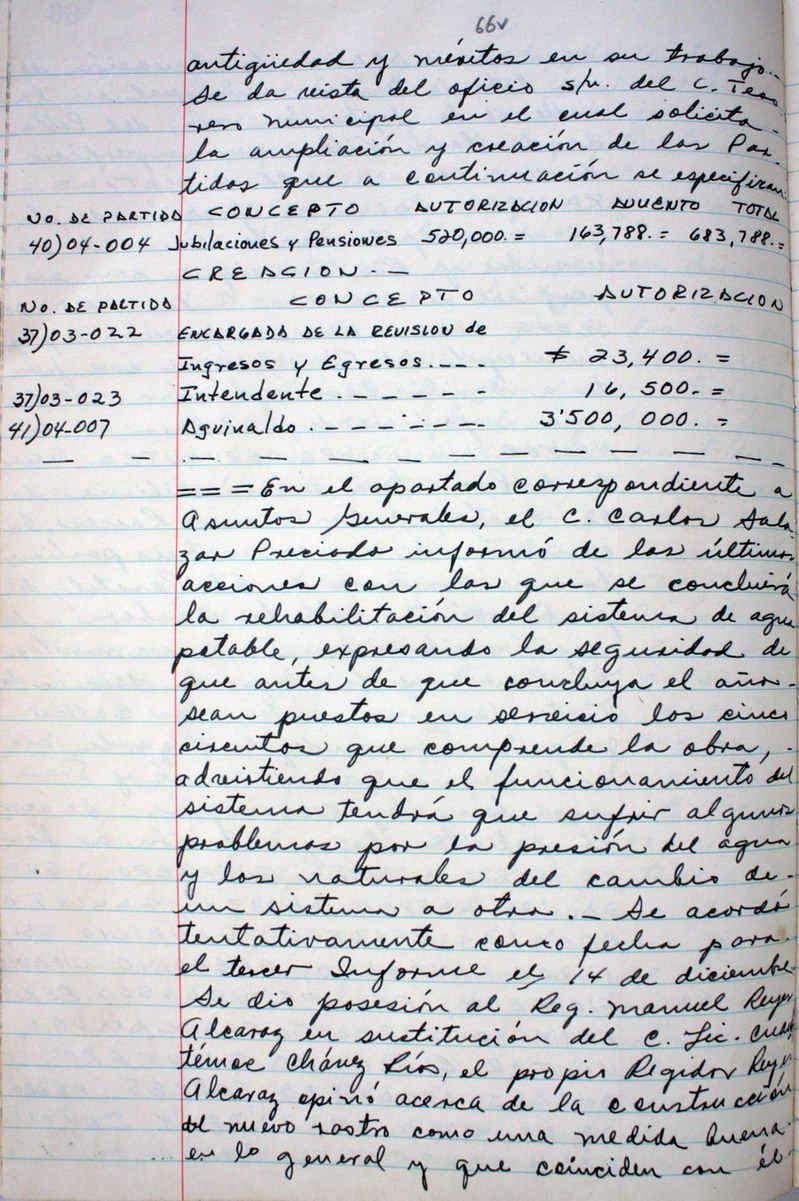 66v
antigüedad y méritos en su trabajo.-
Se da vista del oficio s/n. del C. Teso
rero Municipal en el cual solicita
la ampliación y creación de las Par-
tidas que a continuación se especifican:
No. DE PARTIDA CONCEPTO AUTORIZACION AUMENTO TOTAL
40)04-004 Jubilaciones y Pensiones 520,000.= 163,788.= 683,788.=
CREACION.-
No. DE PARTIDA CONCEPTO AUTORIZACION
37)03-022 ENCARGADA DE LA REVISION de
Ingresos y Egresos.--- $ 23,400.=
37)03-023 Intendente.------ 16,500.=
41)04-007 Aguinaldo.------- 3'500,000.=
— — — — — — — — — — — —
=== En el apartado correspondiente a
Asuntos Generales, el C. Carlos Sala-
zar Preciado informó de las últimas
acciones con las que se concluirá
la rehabilitación del sistema de agua
potable, expresando la seguridad de
que antes de que concluya el año-
sean puestos en servicio los cinco
circuitos que comprende la obra, -
advirtiendo que el funcionamiento del
sistema tendrá que sufrir algunos
problemas por la presión del agua
y los naturales del cambio de-
un sistema a otro.- Se acordó
tentativamente como fecha para
el tercer Informe el 14 de diciembre-
Se dio posesión al Reg. Manuel Reyes
Alcaraz en sustitución del C. Lic. Cuau
témoc Chávez Ríos, el propio Regidor Reyes
Alcaraz opinó acerca de la construcción
del nuevo rastro como una medida buena
en lo general y que coinciden con él